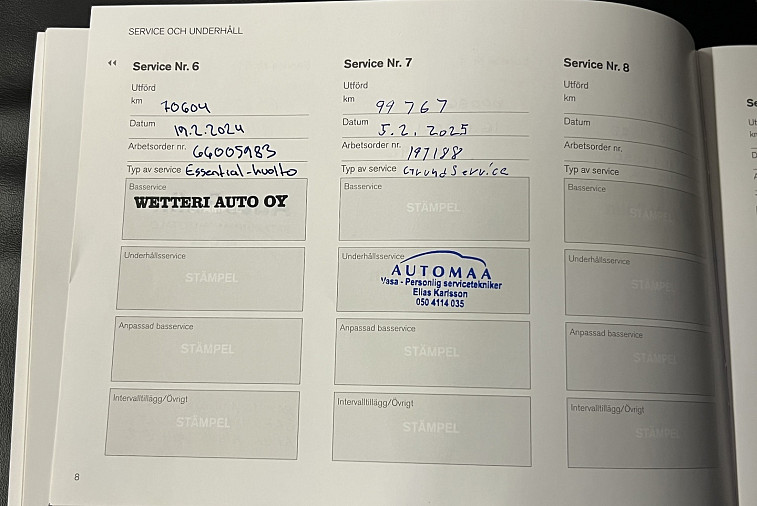 SERVICE OCH UNDERHÅLL
Service Nr. 6
Utförd
km 70604
Datum 19.2.2024
Arbetsorder nr. 66005983
Typ av service Essential-huolto
Basservice
WETTERI AUTO OY
Underhållsservice
STÄMPEL
Anpassad basservice
STÄMPEL
Intervalltillägg/Övrigt
STÄMPEL
8
Service Nr. 7
Utförd
km 99 767
Datum 5.2.2025
Arbetsorder nr. 197188
Typ av service Grundservice
Basservice
STÄMPEL
Underhållsservice
AUTOMAA
Vasa - Personlig servicetekniker
Elias Karlsson
050 4114 035
Anpassad basservice
STÄMPEL
Intervalltillägg/Övrigt
STÄMPEL
Service Nr. 8
Utförd
km
Datum
Arbetsorder nr.
Typ av service
Basservice
STÄMPEL
Underhållsservice
STÄMPEL
Anpassad basservice
STÄMPEL
Intervalltillägg/Övrigt
STÄMPEL